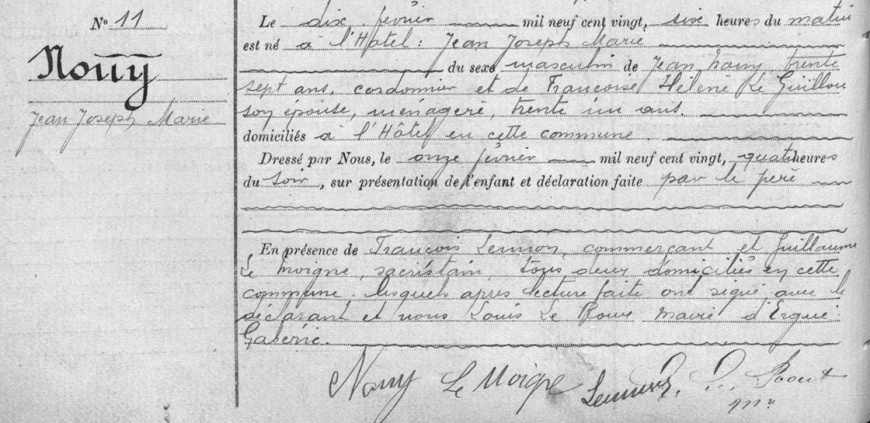 N° 11
Nouÿ
Jean Joseph Marie
Le dix février mil neuf cent vingt, six heures du matin
est né à l'Hôtel : Jean Joseph Marie
du sexe masculin de Jean Nouy, trente
sept ans, cordonnier et de Françoise Hélène Le Guillou
son épouse, ménagère, trente un ans.
domiciliés à l'Hôtel en cette commune.
Dressé par Nous, le onze février mil neuf cent vingt, quatre heures
du soir, sur présentation de l'enfant et déclaration faite par le père
En présence de François Lennon, commerçant et Guillaume
Le Moigne, sacristain, tous deux domiciliés en cette
commune, lesquels après lecture faite ont signé avec le
déclarant et nous Louis Le Roux Maire d'Ergué-
Gabéric.
Nouy Le Moigne